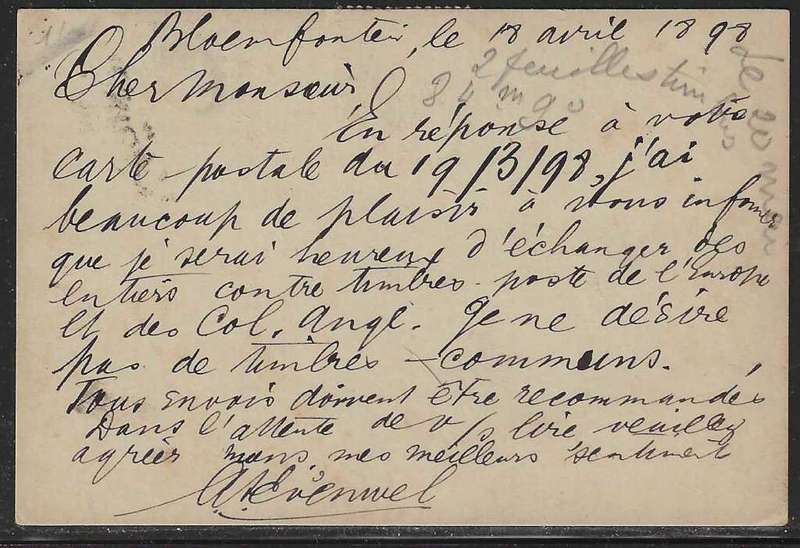 Bloemfontein, le 18 avril 1898
Cher Monsieur,
2 feuilles
En réponse à votre
carte postale du 19/3/98, j'ai
beaucoup de plaisir à vous informer
que je serai heureux d'échanger des
entiers contre timbres-poste de l'Europe
et des Col. Angl. Je ne désire
pas de timbres communs.
Tous envois doivent être recommandés
Dans l'attente de v/s lire veuillez
agréer mons, mes meilleurs sentiment